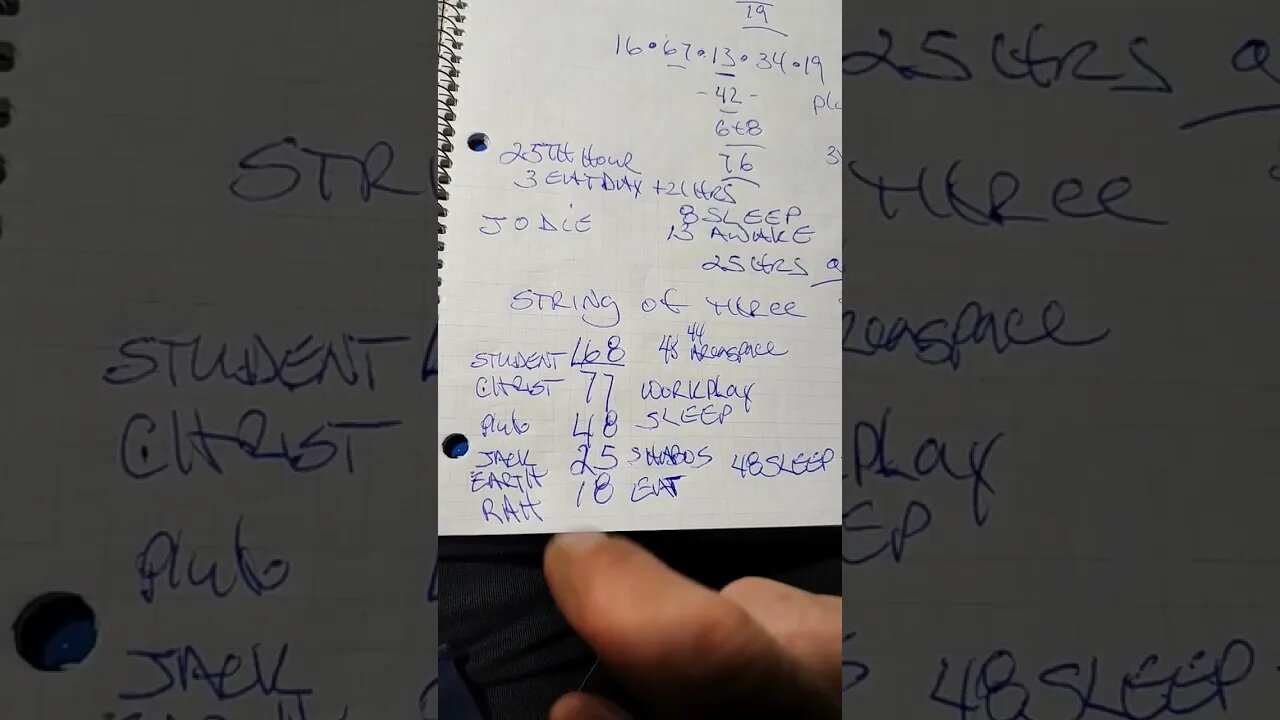 19
16 • 67 • 13 • 34 • 19
- 42 -
6+8
76
25TH HOUR
3 EAT DAY + 21 HRS
JODIE
8 SLEEP
13 AWAKE
25 HRS
STRING OF THREE
STUDENT 168 48 44
CHRIST 77 WORKPLAY
Pluto 48 SLEEP
JACK 25 48 SLEEP
EARTH 18 EAT
RAH